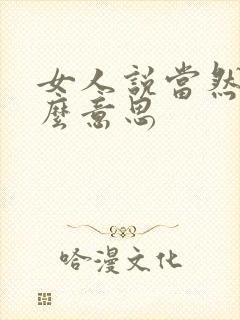 女人説當然
麼意思
哈漫文化